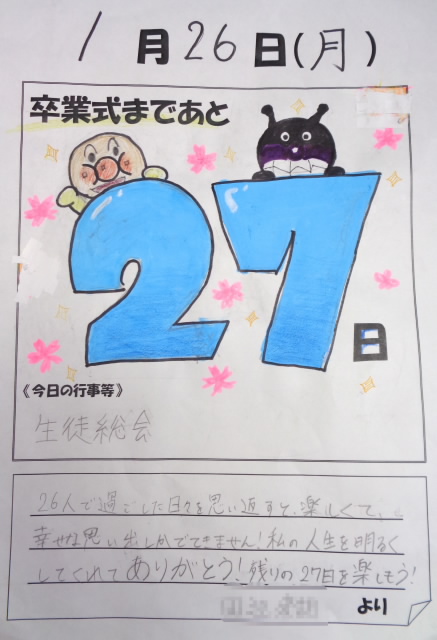 1月26日(月)
卒業式まであと
27
日
《今日の行事等》
生徒総会
26人で過ごした日々を思い返すと、楽しくて、
幸せな思い出しかでてきません！私の人生を明るく
してくれてありがとう！残りの27日を楽しもう！
より